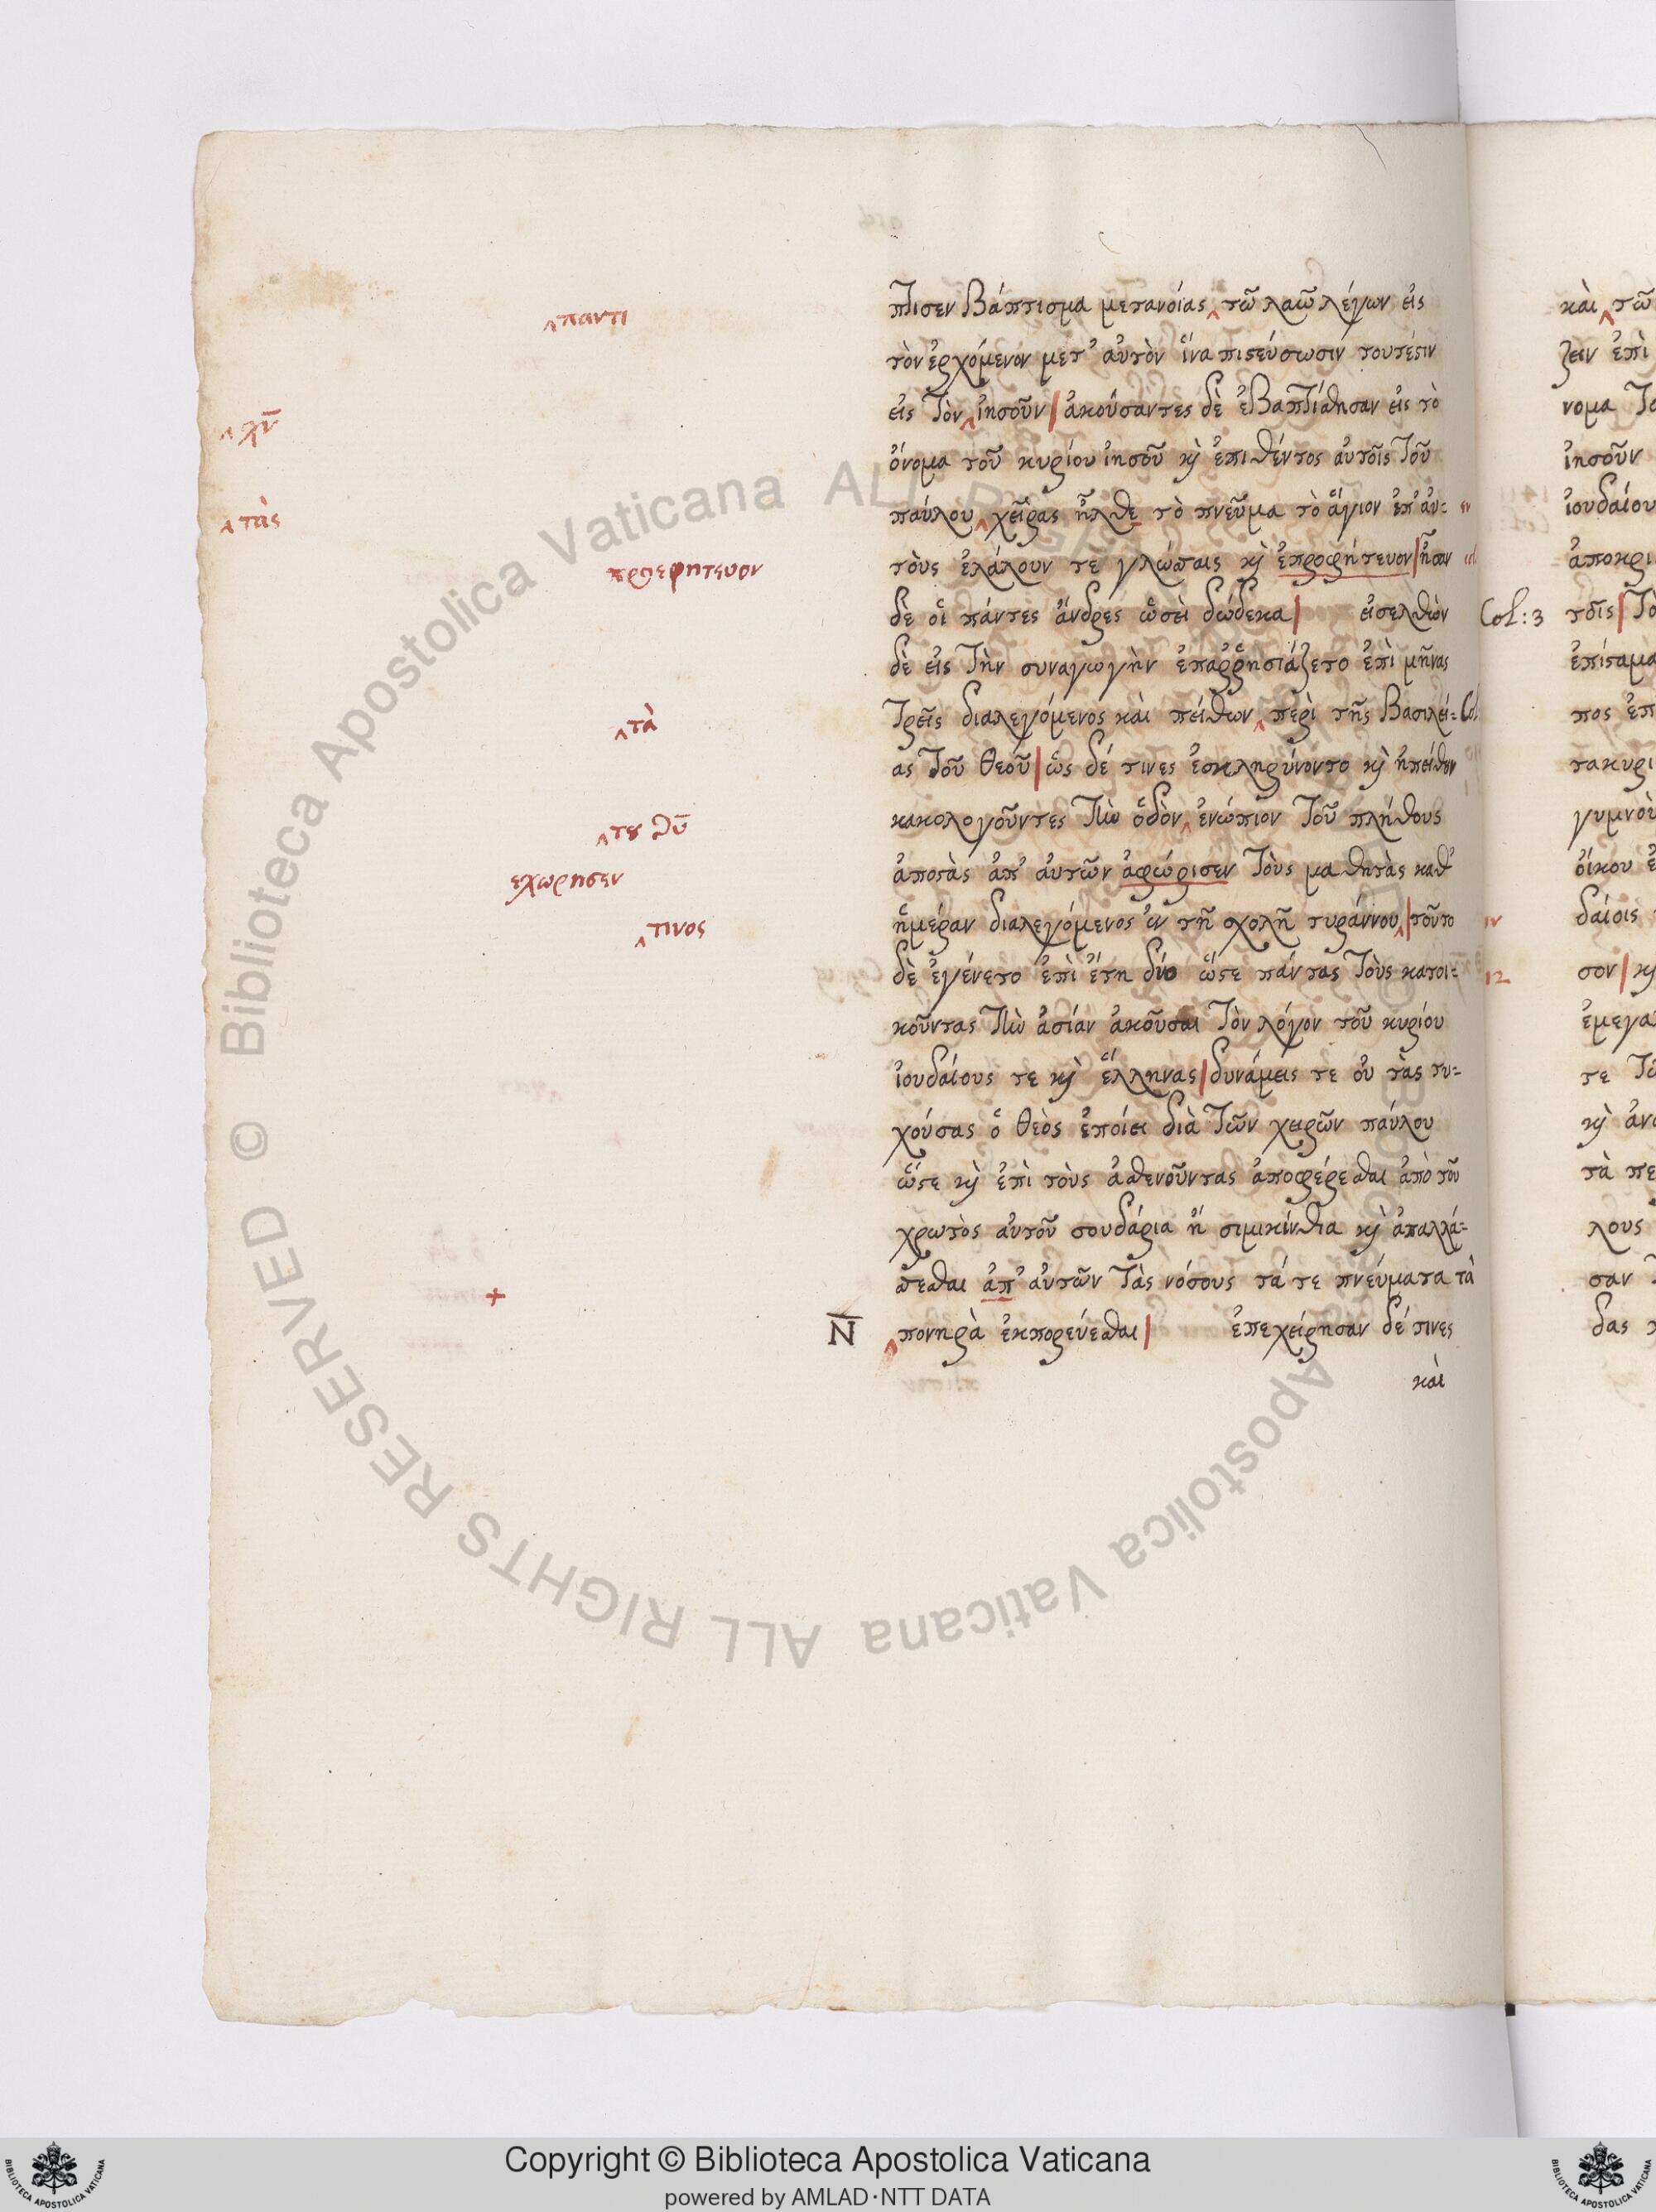 πτισεν βάπτισμα μετανοίας ‸ τῶ λαῶ λέγων εἰς
τὸν ἐρχόμενον μετ' αὐτὸν ἵνα πιστεύσωσιν τουτέστιν
εἰς τὸν ‸ ἰησοῦν | ἀκούσαντες δὲ ἐβαπτίσθησαν εἰς τὸ
ὄνομα τοῦ κυρίου ἰησοῦ κὶ ἐπιθέντος αὐτοῖς τοῦ
παύλου ‸ χεῖρας ἦλθε τὸ πνεῦμα τὸ ἅγιον ἐπ' ἀυ=
τοὺς ἐλάλουν τε γλώσσαις κὶ ἐπροφήτευον | ἦσαν
δὲ οἱ πάντες ἄνδρες ὡσὲι δώδεκα | εἰσελθὼν
δὲ εἰς τὴν συναγωγὴν ἐπαῤῥησιάζετο ἐπὶ μῆνας
τρεῖς διαλεγόμενος καὶ πείθων ‸ περὶ τῆς βασιλεί=
ας τοῦ θεοῦ | ὡς δέ τινες ἐσκληρύνοντο κὶ ἠπείθουν
κακολογοῦντες τὴν ὁδὸν ‸ ἐνώπιον τοῦ πλήθους
ἀποστὰς ἀπ' ἀυτῶν ἀφώρισεν τοὺς μαθητὰς καθ'
ἡμέραν διαλεγόμενος ἐν τῆ σχολῆ τυράννου ‸ | τοῦτο
δὲ ἐγένετο ἐπὶ ἔτη δύο ὥστε πάντας τοὺς κατοι=
κοῦντας τὴν ἀσίαν ἀκοῦσαι τὸν λόγον τοῦ κυρίου
ἰουδαίους τε κὶ ἕλληνας | δυνάμεις τε οὐ τὰς τυ=
χούσας ὁ θεὸς ἐποίει διὰ τῶν χειρῶν παύλου
ὥστε κὶ ἐπὶ τοὺς ἀσθενοῦντας ἀποφέρεσθαι ἀπὸ τοῦ
χρωτὸς αὐτοῦ σουδάρια ἢ σιμικίνθια κὶ ἀπαλλά=
σσεσθαι ἀπ' ἀυτῶν τὰς νόσους τά τε πνεύματα τὰ
N̄ ‸ πονηρὰ ἐκπορεύεσθαι | ἐπεχείρησαν δέ τινες
καὶ
‸ παντι
‸ χν̄
‸ τὰς
προεφητευον
‸ τὰ
‸ του θῡ
εχωρησεν
‸ τινος
+
Col: 3
12
καὶ ‸ τῶ
ζειν ἐπὶ
νομα
ἰησοῦν
ἰουδαίου
ἀποκρι
τοῖς |
ἐπίσταμα
πος ἐπ
τακυρι
γυμνοὺ
οἴκου ἐ
δαίοις
σον | κὶ
ἐμεγα
τε
κὶ ἀν
τὰ πε
λους
σαν
δας
Copyright © Biblioteca Apostolica Vaticana
powered by AMLAD·NTT DATA
© Biblioteca Apostolica Vaticana ALL RIGHTS RESERVED
BIBLIOTECA APOSTOLICA VATICANA
BIBLIOTECA APOSTOLICA VATICANA